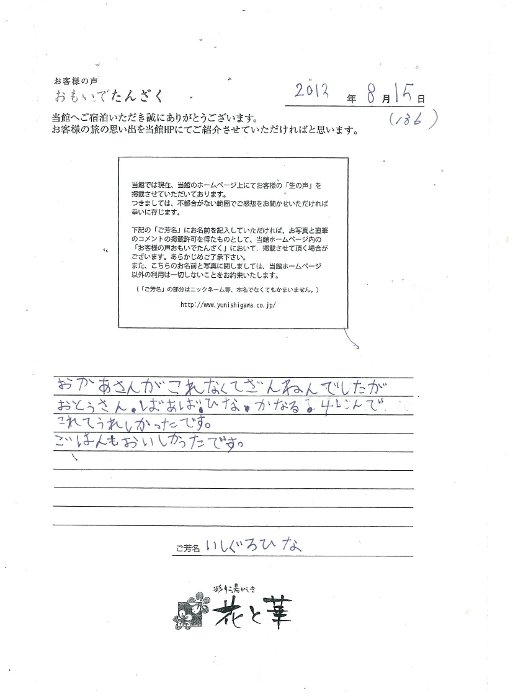 お客様の声
おもいでたんざく
2013 年 8 月 15 日
(136)
当館へご宿泊いただき誠にありがとうございます。
お客様の旅の思い出を当館HPにてご紹介させていただければと思います。
当館では現在、当館のホームページ上にてお客様の「生の声」を
掲載させていただいております。
つきましては、不都合がない範囲でご感想をお聞かせいただければ
幸いに存じます。
下記の「ご芳名」にお名前を記入していただければ、お写真と直筆
のコメントの掲載許可を得たものとして、当館ホームページ内の
「お客様の声おもいでたんざく」において、掲載させて頂く場合が
ございます。あらかじめご了承下さい。
また、こちらのお名前と写真に関しましては、当館ホームページ
以外の利用は一切しないことをお約束いたします。
(「ご芳名」の部分はニックネーム等、本名でなくてもかまいません。)
http://www.yunishigawa.co.jp/
おかあさんがこれなくてざんねんでしたが
おとうさん。ばあば。ひな。かなる。4にんで
これてうれしかったです。
ごはんもおいしかったです。
ご芳名 いしぐろひな
花と華